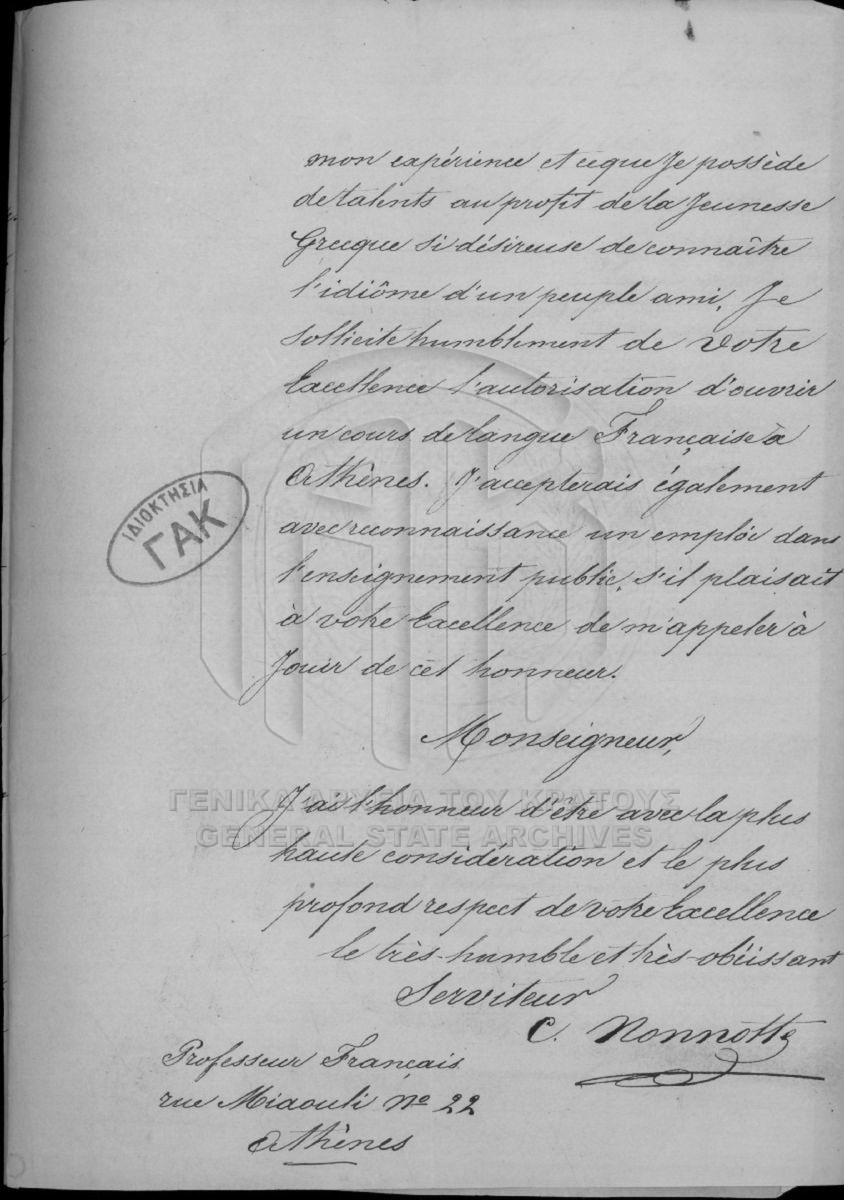 mon expérience et ce que Je possède
de talents au profit de la Jeunesse
Grecque si désireuse de connaître
l'idiôme d'un peuple ami. Je
sollicite humblement de votre
Excellence l'autorisation d'ouvrir
un cours de langue Française à
Athênes. J'accepterais également
avec reconnaissance un emploi dans
l'enseignement public, s'il plaisait
à votre Excellence de m'appeler à
Jouir de cet honneur.
Monseigneur,
J'ai l'honneur d'être avec la plus
haute considération et le plus
profond respect de votre Excellence
le très-humble et très-obéissant
Serviteur
C. Nonnotte
Professeur Français
rue Miaouli No 22
Athênes
ΙΔΙΟΚΤΗΣΙΑ
ΓΑΚ
ΓΕΝΙΚΑ ΑΡΧΕΙΑ ΤΟΥ ΚΡΑΤΟΥΣ
GENERAL STATE ARCHIVES